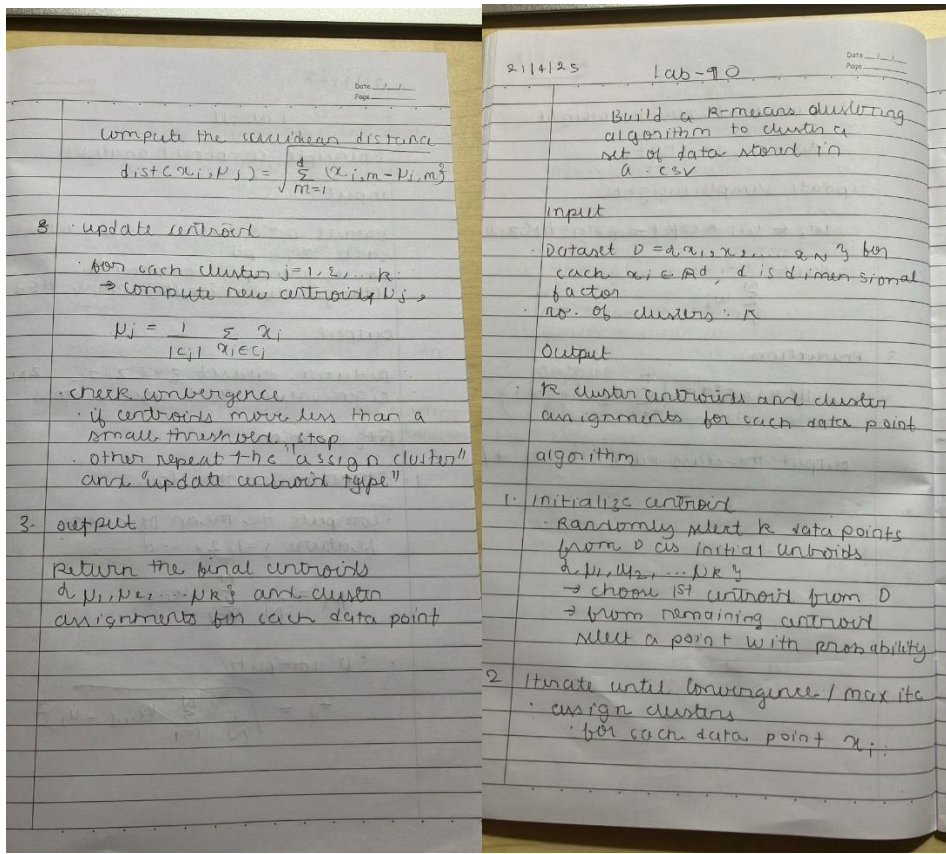 Date
Page
compute the euclidean distance
dist(xi, μj) = √ d Σ m=1 (xi,m - μj,m)²
3 · update centroid
· for each cluster j=1, 2, ... k
→ compute new centroids μj,
μj = 1 / |Cj| Σ xi∈Cj xi
· check convergence
· if centroids move less than a
small threshold, stop
· other repeat the "assign cluster"
and "update centroid type"
3. output
Return the final centroids
{μ1, μ2, ... μk} and cluster
assignments for each data point
Date
Page
21/4/25 Lab-10
Build a k-means clustering
algorithm to cluster a
set of data stored in
a .csv
Input
· Dataset D = {x1, x2, ... xN} for
each xi ∈ Rd, d is dimensional
factor
· no. of clusters : K
Output
· K cluster centroids and cluster
assignments for each data point
algorithm
1. Initialize centroid
· Randomly select k data points
from D as initial centroids
{μ1, μ2, ... μk}
→ choose 1st centroid from D
→ from remaining centroid
select a point with probability
2 Iterate until convergence / max itc
· assign clusters
· for each data point xi: